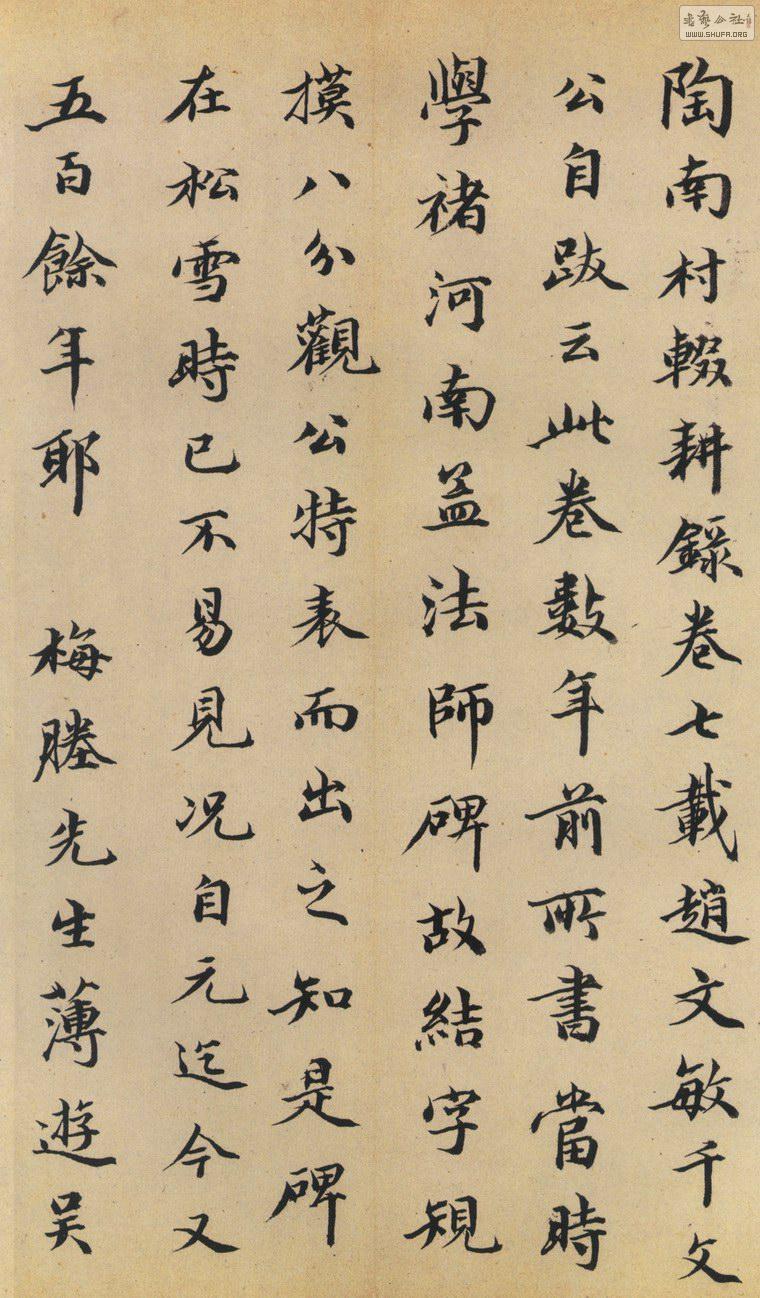 陶南村輟耕錄卷七載趙文敏千文
公自跋云此卷數年前所書當時
學褚河南孟法師碑故結字規
摸八分觀公特表而出之知是碑
在松雪時已不易見況自元迄今又
五百餘年耶 梅塍先生薄遊吴
WWW.SHUFA.ORG